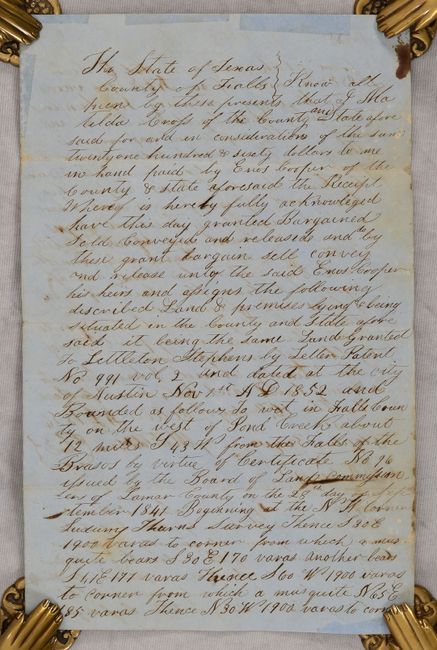 The State of Texas
County of Falls } Know all
men by these presents that I Ma
tilda Cross of the County and State afore
said for and in consideration of the sum
twenty one hundred & sixty dollars to me
in hand paid by Enos Cooper of the
County & state aforesaid the Receipt
Whereof is hereby fully acknowledged
have this day granted Bargained
Sold Conveyed and released and by
these grant bargain sell convey
and release unto the said Enos Cooper
his heirs and assigns the following
discribed Land & premises lying & being
situated in the County and State afore
said it being the same Land Granted
to Littleton Stephens by Letter Patent
No 991 vol. 2 and dated at the city
of Austin Nov 1st A D 1852 and
Bounded as follows to wit, in Falls Coun
ty on the west of Pond Creek about
12 miles S 43 W from the Falls of the
Brasos by virtue of Certificate No 96
issued by the Board of Land Commission
ers of Lamar County on the 25th day of Sep
tember 1841 Beginning at the N W Corner
Survey Thence S 30 E
1900 varas to corner from which a mus
quite bears S 30 E 170 varas another bears
S 41 E 177 varas Thence S 60 W 1900 varas
to corner from which a musquite N 65 E
85 varas Thence N 30 W 1900 varas to corn